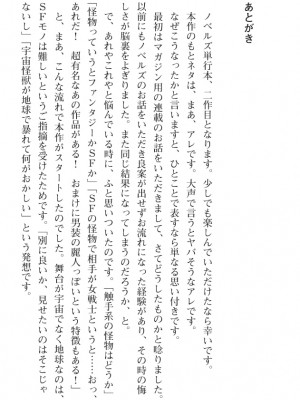 あとがき
ノベルズ単行本、二作目となります。少しでも楽しんでいただけたなら幸いです。
本作のもとネタは、まあ、アレです。大声で言うとヤバそうなアレです。
なぜこうなったかと言いますと、ひとことで表すなら単なる思い付きです。
最初はマガジン用の連載のお話をいただきまして、さてどうしたものかと唸りました。
以前にもノベルズのお話をいただき良案が出せずお流れになった経験があり、その時の悔
しさが脳裏をよぎりました。また同じ結果になってしまうのだろうか、と。
で、あれやこれやと悩んでいる時に、ふと思いついたのです。「触手系の怪物はどうか」
「怪物っていうとファンタジーかSFか」「SFの怪物で相手が女戦士というと……おっ、
あれだ！　超有名なあの作品がある！　おまけに男装の麗人っぽいという特徴もある！」
と、まあ、こんな流れで本作がスタートしたのでした。舞台が宇宙でなく地球なのは、
SFモノは難しいというご指摘を受けたためです。「別に良いか、見せたいのはそこじゃ
ないし」「宇宙怪獣が地球で暴れて何がおかしい」という発想です。